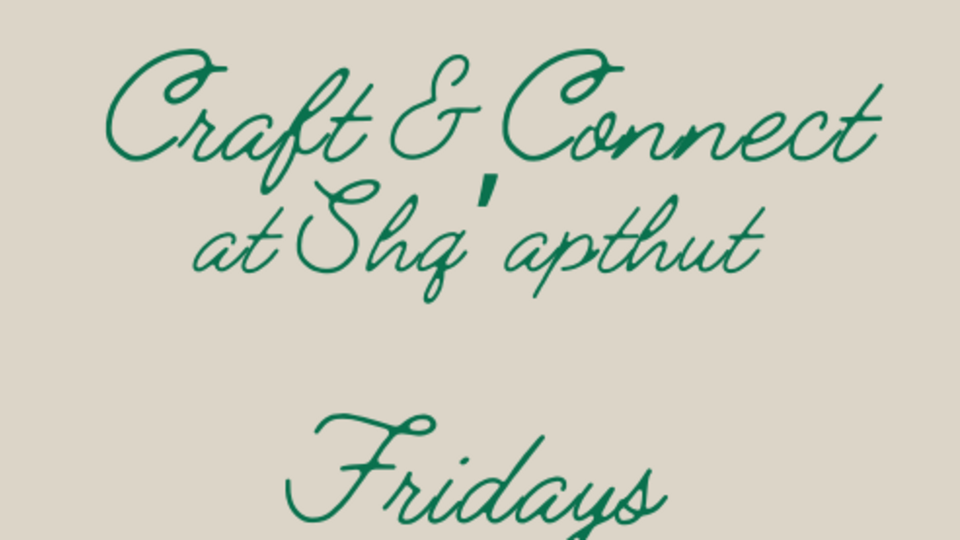 Craft & Connect
at Shq'apthut
Fridays